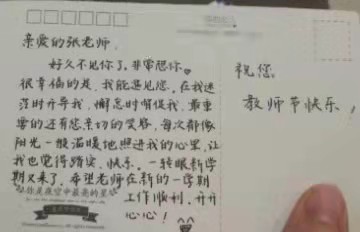 亲爱的张老师.
好久不见你了,非常想你。
很幸福的是,我能遇见您,在我迷
茫时开导我,懈怠时督促我,最重
要的还有您亲切的笑容,每次都像
阳光一般温暖地照进我的心里,让
我也觉得踏实、快乐,一转眼新学
期又来了,希望老师在新的一学期
工作顺利,开开
心心!
你是夜空中最亮的星
祝您
教师节快乐!